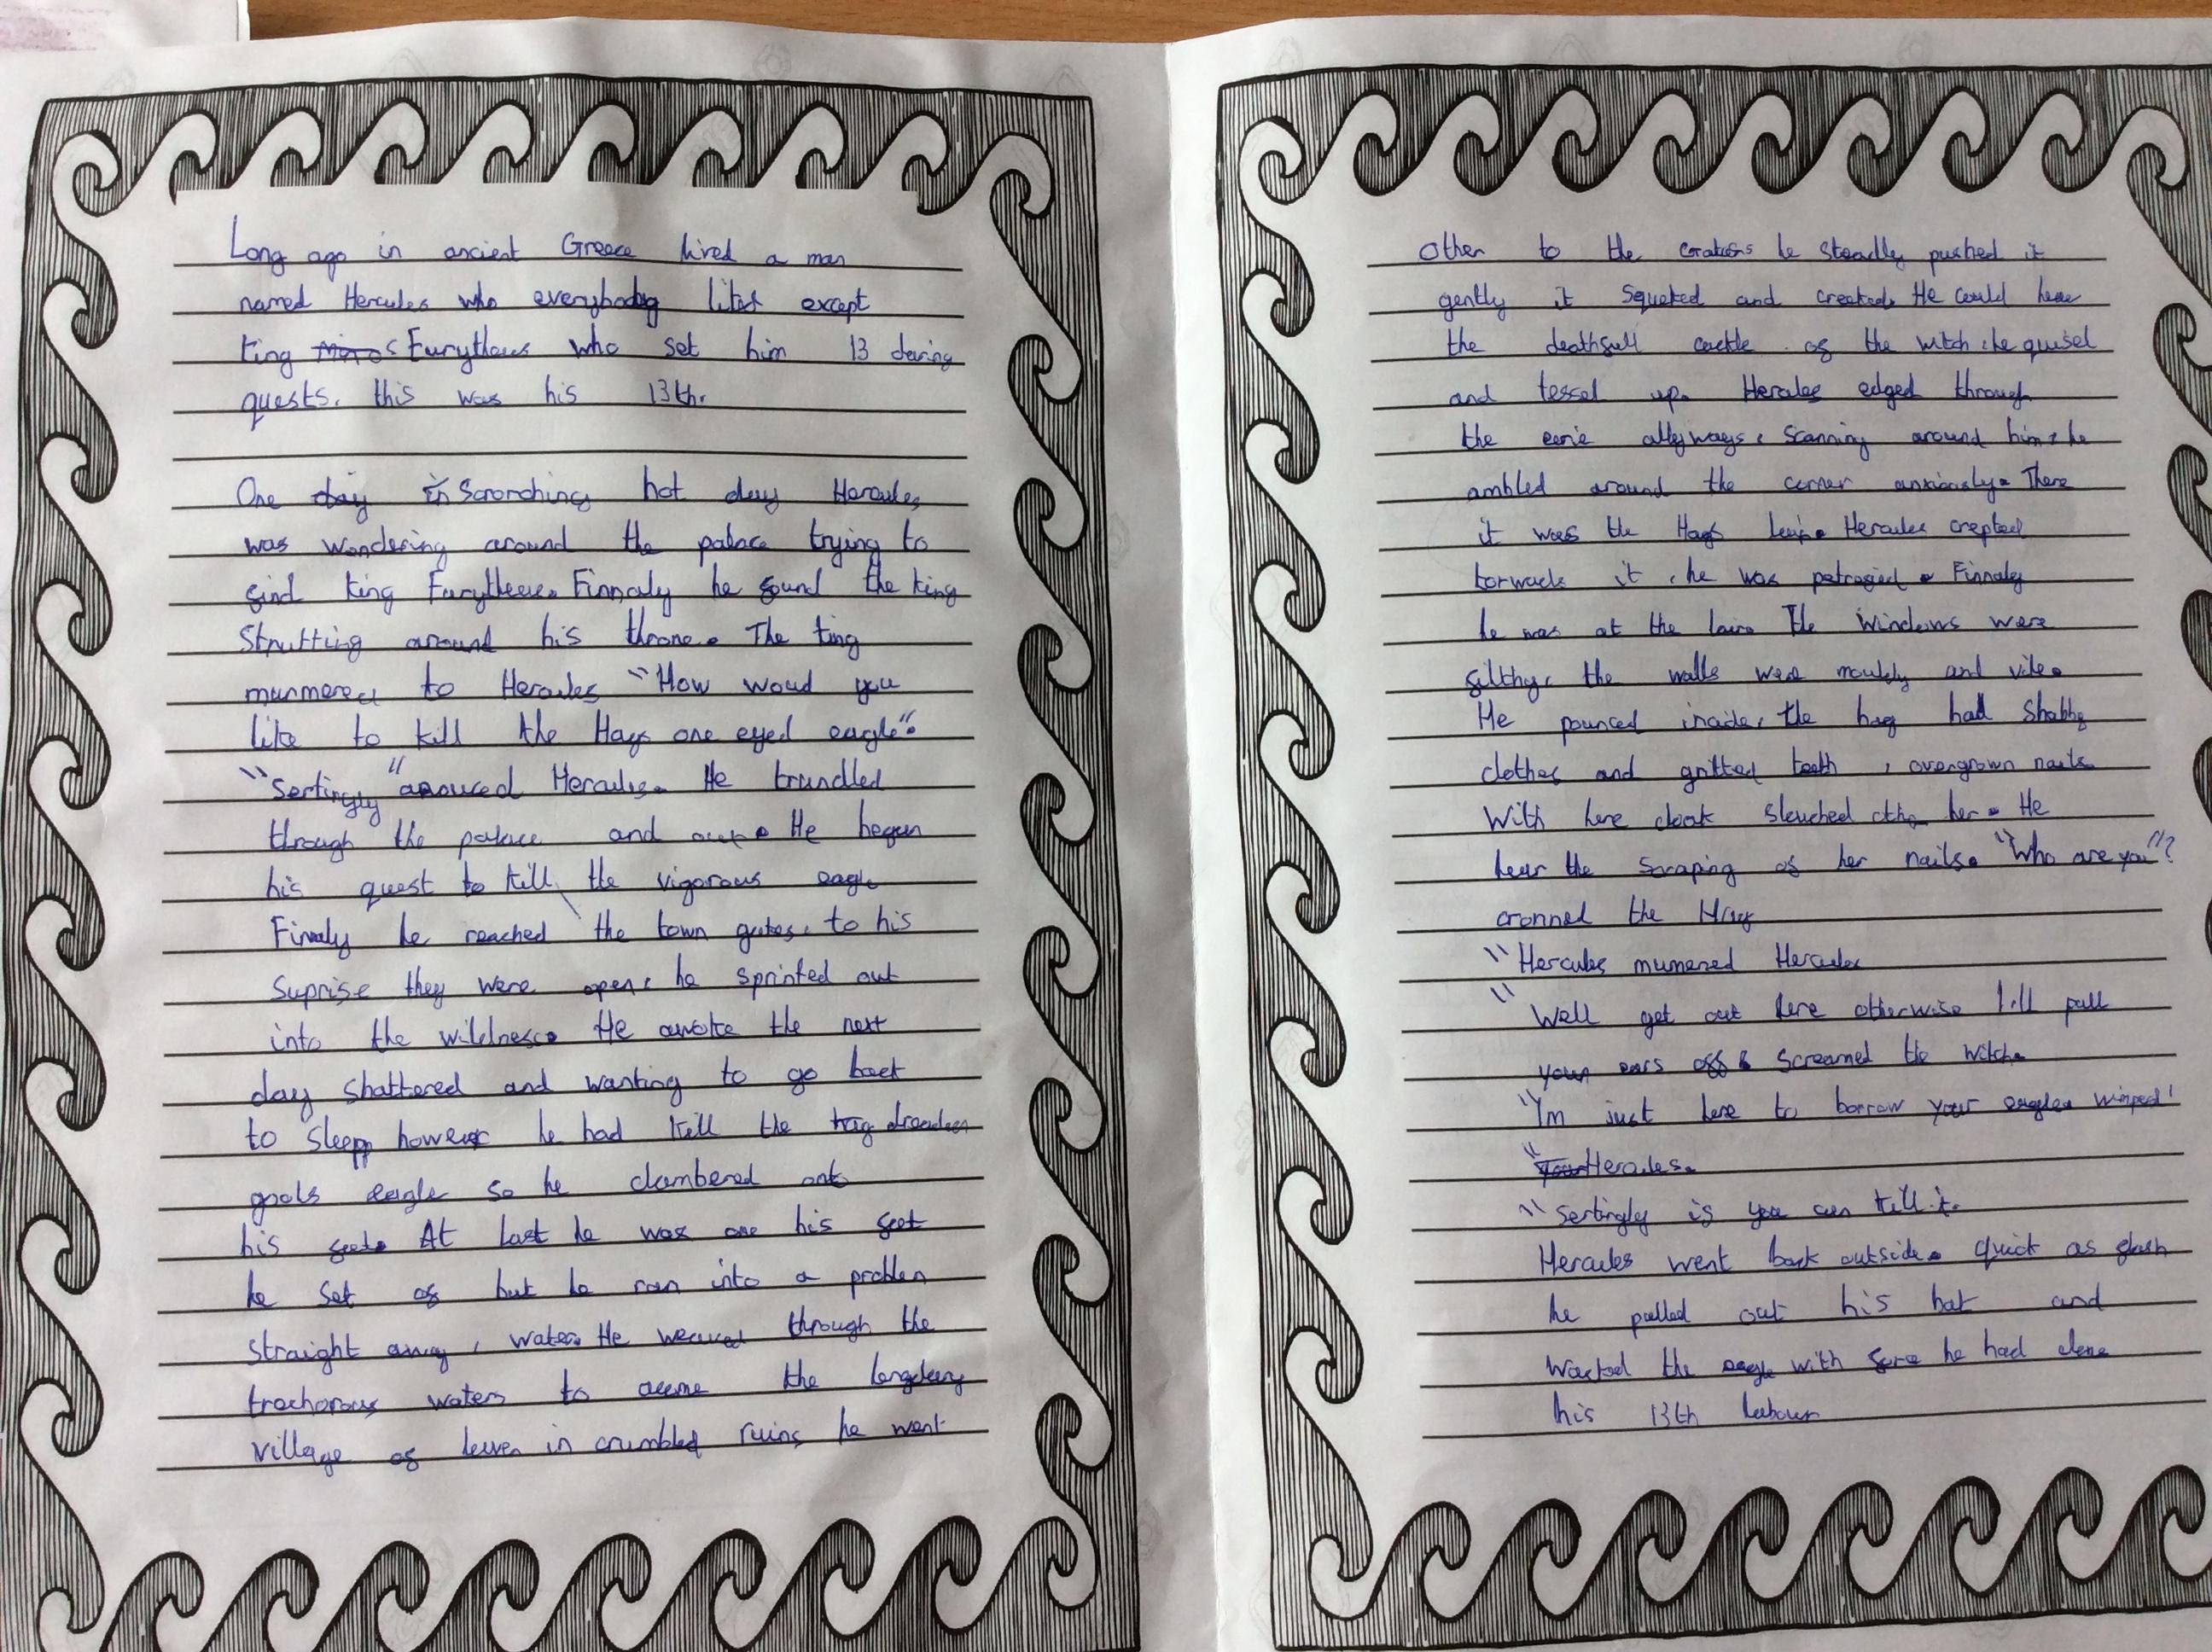 Long ago in ancient Greece lived a man
named Hercules who everybody likes except
king Minos Eurytheus who set him 13 daring
quests. this was his 13th.
One day in Scrorching hot day Hercules
was wondering around the palace trying to
find king Eurytheus. Finnaly he found the king
Strutting around his throne. The king
murmered to Hercules "How woud you
like to kill the Hags one eyed eagle".
"Sertingly" anouced Hercules. He trundled
through the palace and out. He began
his quest to kill the vigorous eagle
Finaly he reached the town gates, to his
Suprise they were open, he sprinted out
into the wildness. He awoke the next
day shattered and wanting to go back
to sleep however he had kill the hag
eagle so he clambered onto
his feet. At last he was one his feet
he set of but he ran into a problem
straight away, water. He weaved through the
trachorous waters to the
village of in crumbled ruins he went
other to the he steadly pushed it
gently it squeked and creeked. He could hear
the deathfull cackle of the witch, he
and up. Hercules edged through
the eerie allyways, Scanning around him, he
ambled around the corner anxiously. There
it was the Hags lair. Hercules crepted
torwads it, he was petrofied. Finnaly
he was at the lair. The windows were
filthy, the walls were mouldy and vile.
He pounced inside, the hag had shabby
clothes and gritted teeth, overgrown nails
With here cloak slouched her. He
hear the scraping of her nails. "Who are you"?
cronned the Hag
"Hercules mumered Hercules
"Well get out here otherwise I'll pull
your ears off screamed the witch.
"I'm just here to borrow your eagle"
"Hercules.
"Sertingly if you can kill it.
Hercules went back outside. quick as flash
he pulled out his bat and
wacked the eagle with he had done
his 13th labour